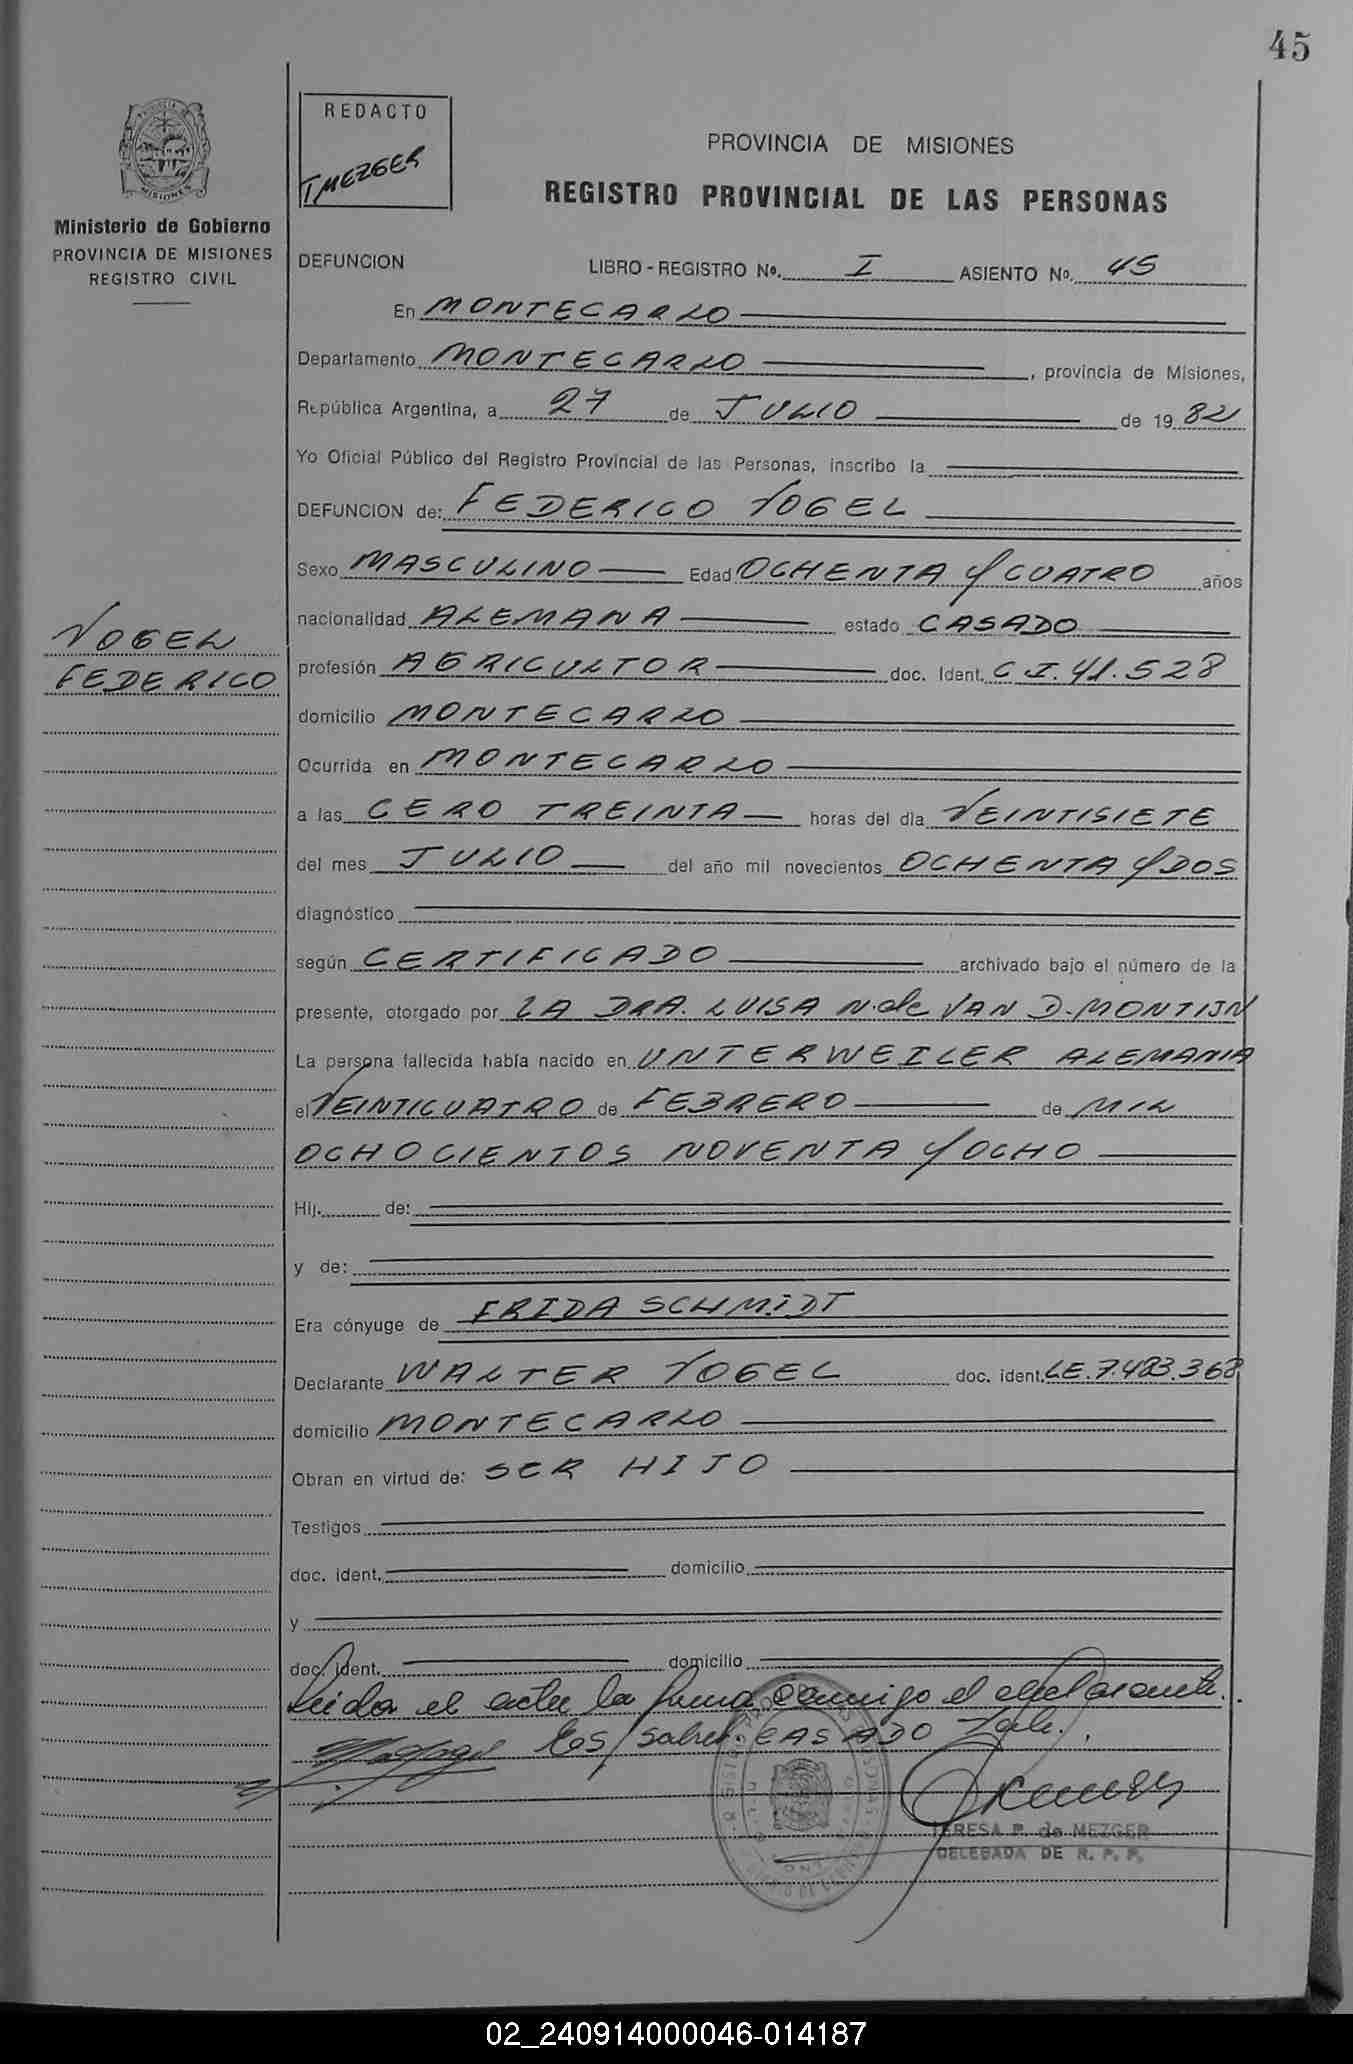 45
REDACTO
T MEZGER
PROVINCIA DE MISIONES
REGISTRO PROVINCIAL DE LAS PERSONAS
MISIONES
Ministerio de Gobierno
PROVINCIA DE MISIONES
REGISTRO CIVIL
DEFUNCION LIBRO - REGISTRO Nº. I ASIENTO Nº. 45
En MONTECARLO
Departamento MONTECARLO , provincia de Misiones,
República Argentina, a 27 de JULIO de 19 82
Yo Oficial Público del Registro Provincial de las Personas, inscribo la
DEFUNCION de: FEDERICO VOGEL
Sexo MASCULINO Edad OCHENTA Y CUATRO años
nacionalidad ALEMANA estado CASADO
VOGEL
FEDERICO
profesión AGRICULTOR doc. Ident. C I. 41.528
domicilio MONTECARLO
Ocurrida en MONTECARLO
a las CERO TREINTA horas del día VEINTISIETE
del mes JULIO del año mil novecientos OCHENTA Y DOS
diagnóstico
según CERTIFICADO archivado bajo el número de la
presente, otorgado por LA DRA. LUISA N. de VAN D. MONTIJN
La persona fallecida había nacido en UNTERWEILER ALEMANIA
el VEINTICUATRO de FEBRERO de MIL
OCHOCIENTOS NOVENTA Y OCHO
Hij. de:
y de:
Era cónyuge de FRIDA SCHMIDT
Declarante WALTER VOGEL doc. ident. LE. 7.483.368
domicilio MONTECARLO
Obran en virtud de: SER HIJO
Testigos
doc. ident. domicilio
y
doc. ident. domicilio
Leida el acta la firma conmigo el declarante.
E/S/ sobre: CASADO Vale.
TERESA P. de MEZGER
DELEGADA DE R. P. P.
02_240914000046-014187